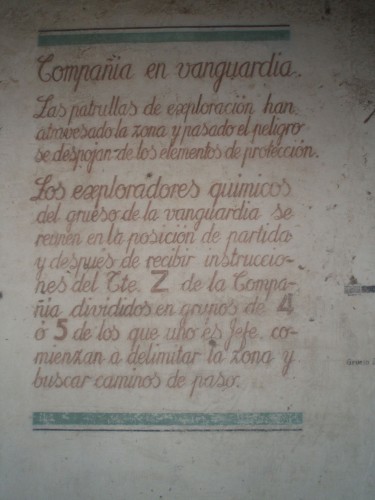 Compañia en vanguardia.
Las patrullas de exploración han
atravesado la zona y pasado el peligro
se despojan de los elementos de protección.
Los exploradores quimicos
del grueso de la vanguardia se
reúnen en la posición de partida
y después de recibir instruccio-
nes del Tte. Z de la Compa-
ñia divididos en grupos de 4
ó 5 de los que uno es Jefe, co-
mienzan a delimitar la zona y
buscar caminos de paso.